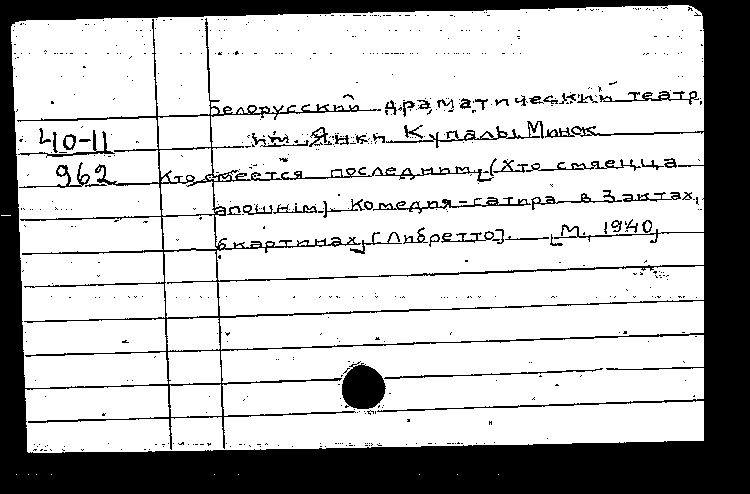 Белорусский драматический театр
40-11 им. Янки Купалы, Минск
962 Кто смеется последним, (Хто смяецца
апошнім). Комедия-сатира в 3 актах,
6 картинах, [Либретто]. [М., 1940]